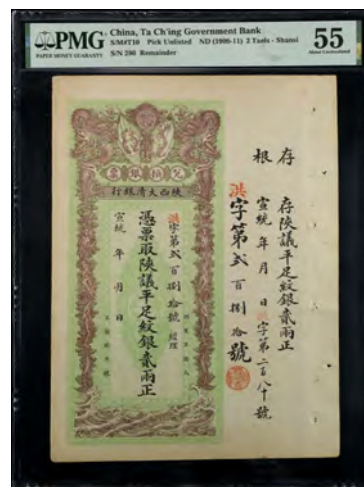 PMG
PAPER MONEY GUARANTY
China, Ta Ch'ing Government Bank
S/M#T10 Pick Unlisted ND (1906-11) 2 Taels - Shansi
S/N 280 Remainder
55
About Uncirculated
存根
存陝議平足紋銀貳兩正
宣統 年 月 日 洪字第二百八十號
洪字第貳百捌拾號
票銀換兌
行銀清大西陝
洪字第貳百捌拾號 經理
憑票取陝議平足紋銀貳兩正
宣統 年 月 日